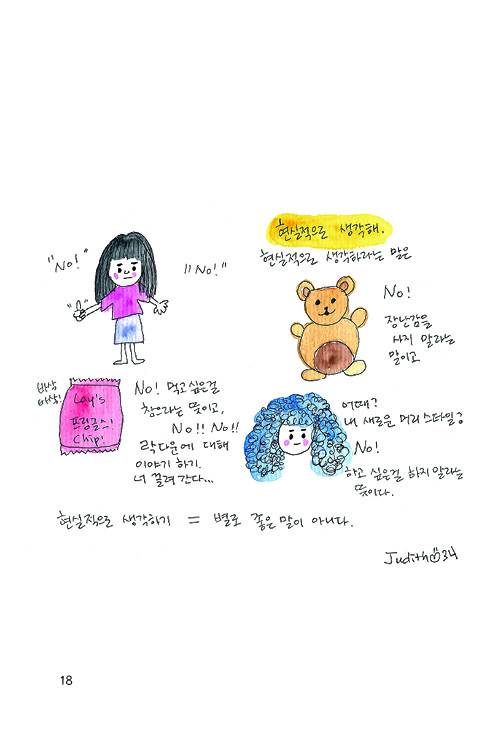 현실적으로 생각해.
현실적으로 생각하라는 말은
"No!"
"No!"
No!
장난감을
사지 말라는
말이고
바삭
바삭!
Lay's
프링글스!
Chip!
No! 먹고 싶은걸
참으라는 뜻이고,
No!! No!!
락다운에 대해
이야기 하기.
너 끌려간다...
어때?
내 새로운 머리 스타일?
No!
하고 싶은걸 하지 말라는
뜻이다.
현실적으로 생각하기 = 별로 좋은 말이 아니다.
Judith 34
18